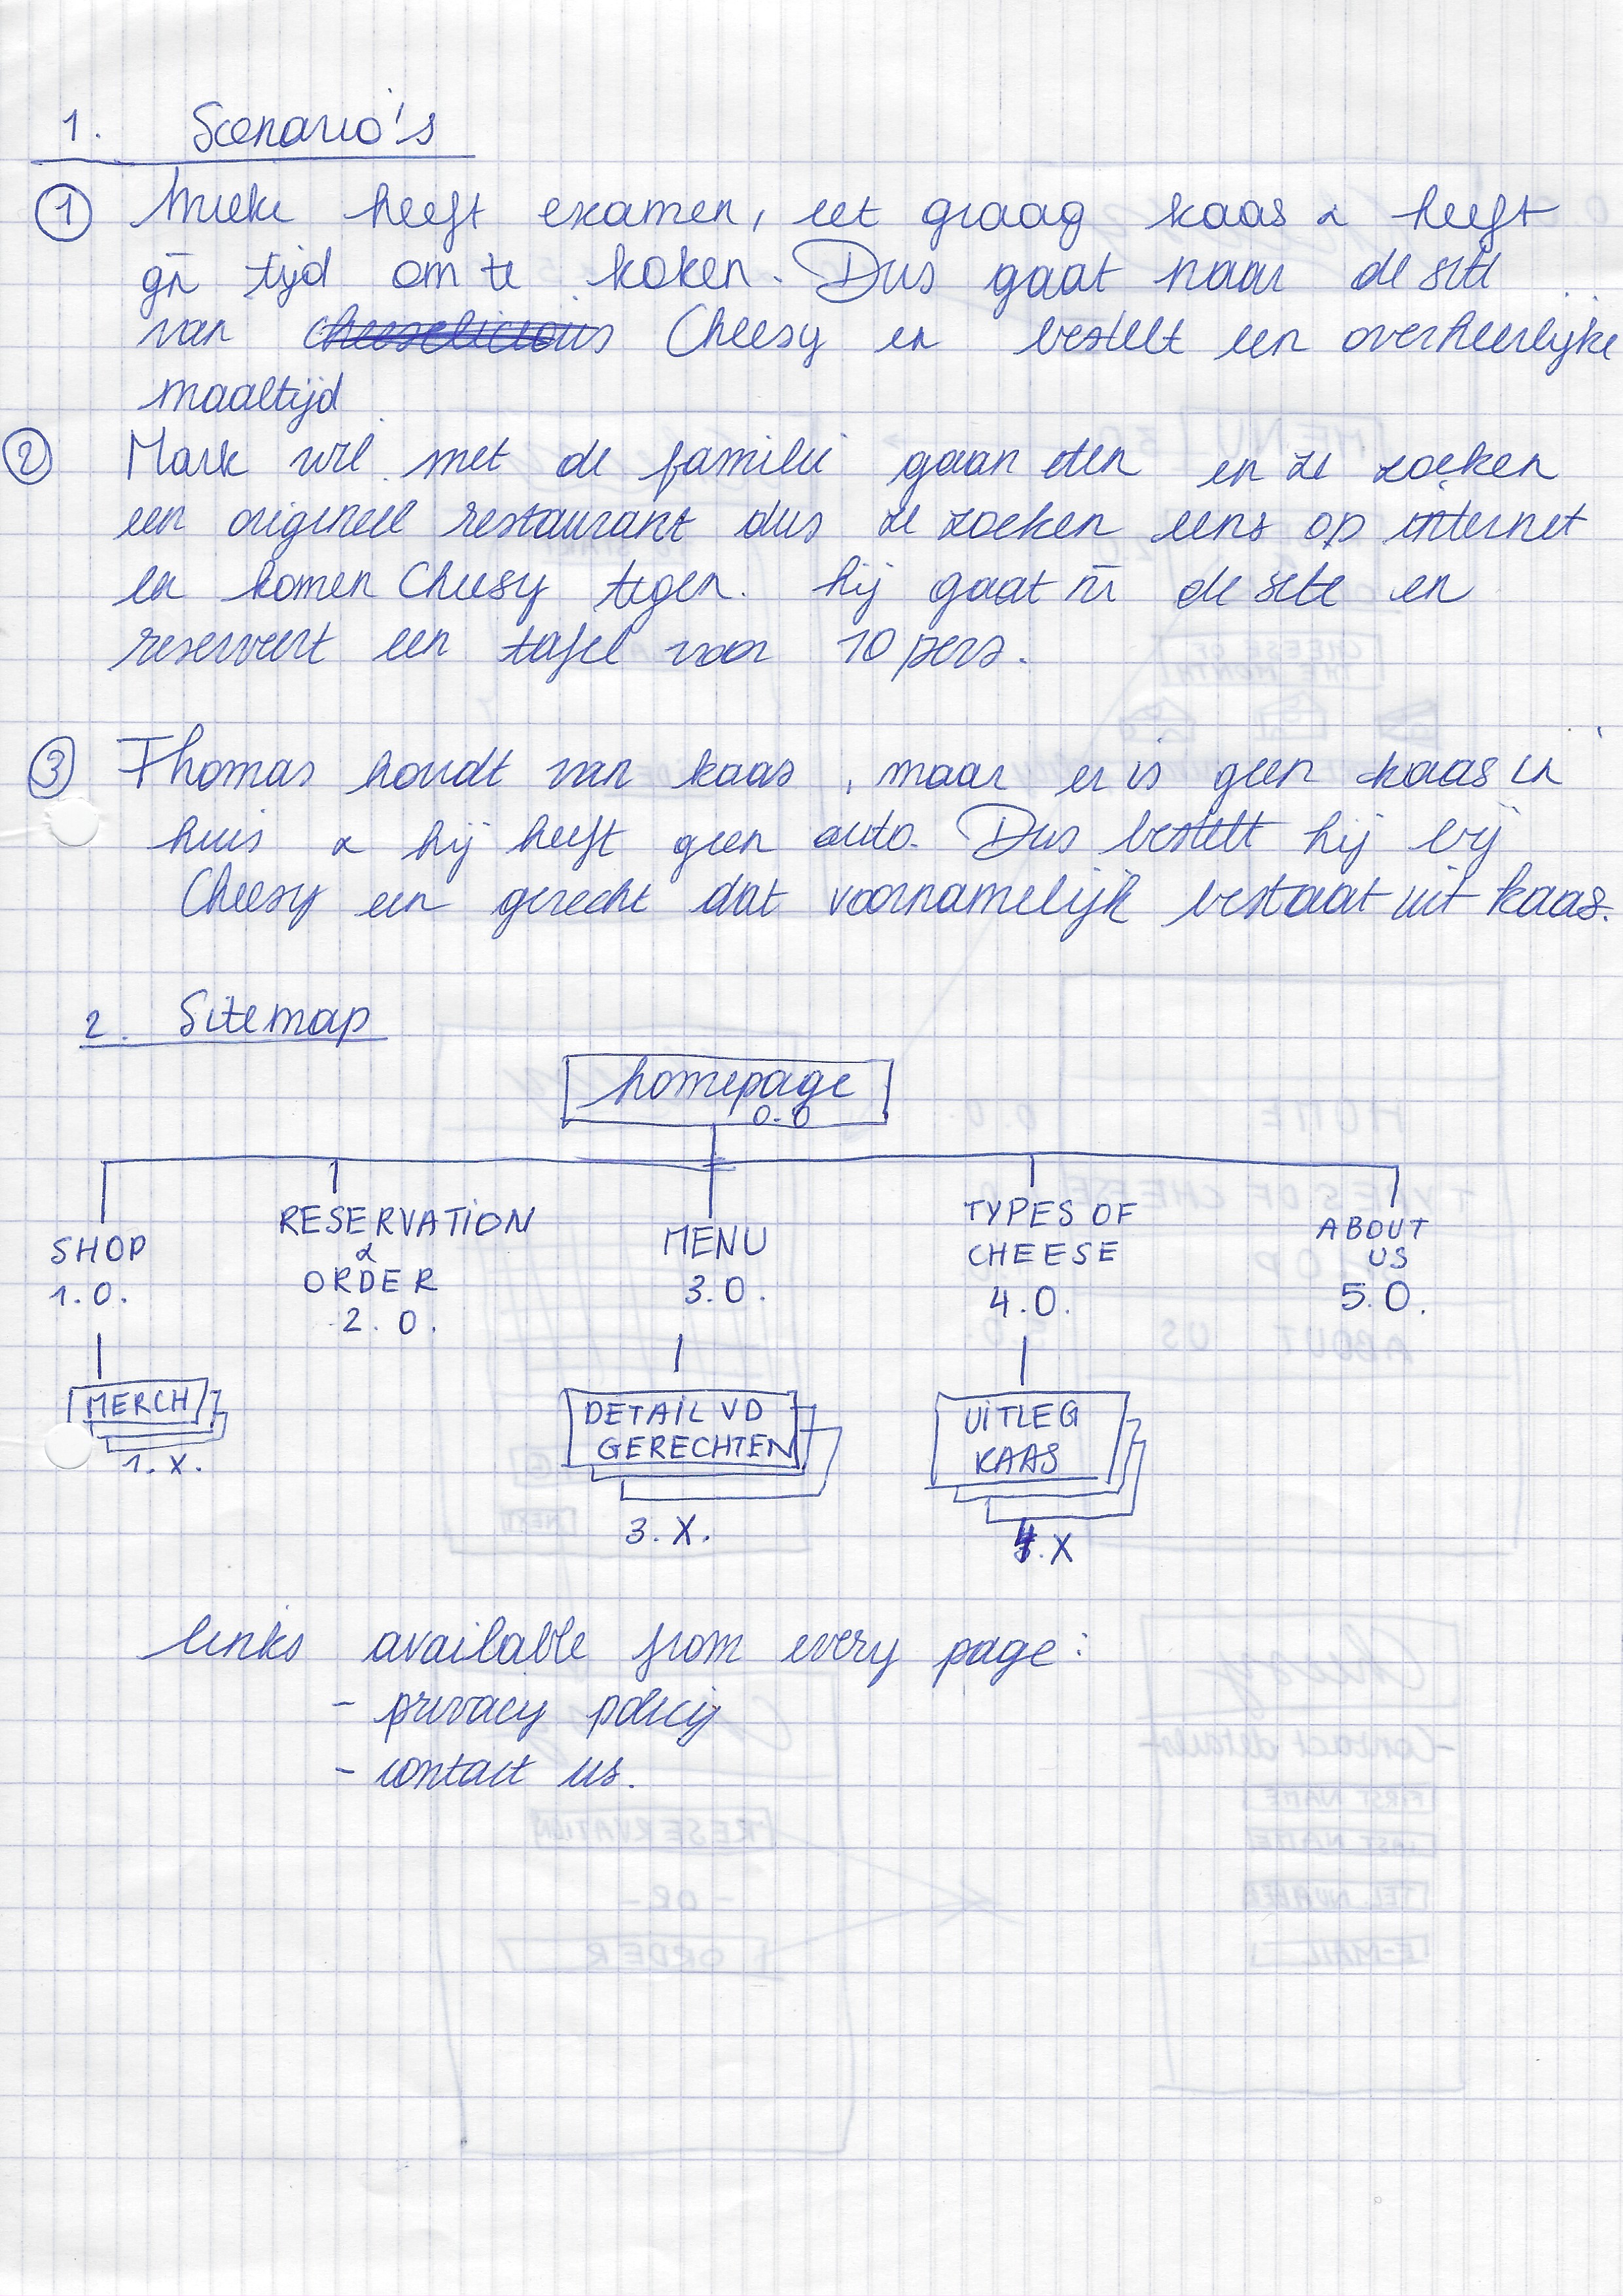 1. Scenario's
① Mieke heeft examen, eet graag kaas & heeft
gn̄ tijd om te koken. Dus gaat naar de site
van cheeselicious Cheesy en bestelt een overheerlijke
maaltijd
② Mark wil met de familie gaan eten en ze zoeken
een origineel restaurant dus ze zoeken eens op internet
en komen Cheesy tegen. hij gaat nr̄ de site en
reserveert een tafel voor 10 pers.
③ Thomas houdt van kaas, maar er is geen kaas in
huis & hij heeft geen auto. Dus bestelt hij bij
Cheesy een gerecht dat voornamelijk bestaat uit kaas.
2. Sitemap
homepage
0.0
SHOP
1.0.
RESERVATION
&
ORDER
2.0.
MENU
3.0.
TYPES OF
CHEESE
4.0.
ABOUT
US
5.0.
MERCH
1.X.
DETAIL VD
GERECHTEN
3.X.
UITLEG
KAAS
4.X
links available from every page:
- privacy policy
- contact us.